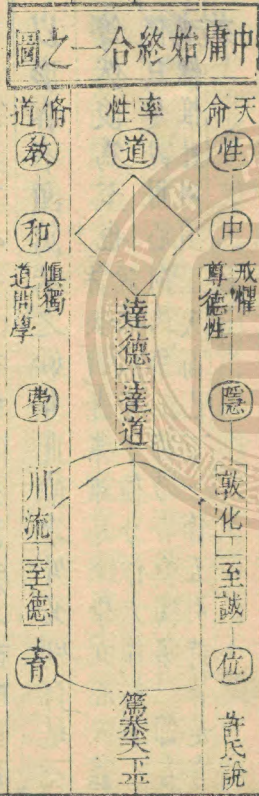 中庸始終合一之圖
天命
性
中
戒懼
尊德性
隱
敦化
至誠
位
許氏說
率性
道
達德
達道
篤恭天下平
脩道
教
和
慎獨
道問學
費
川流
至德
育